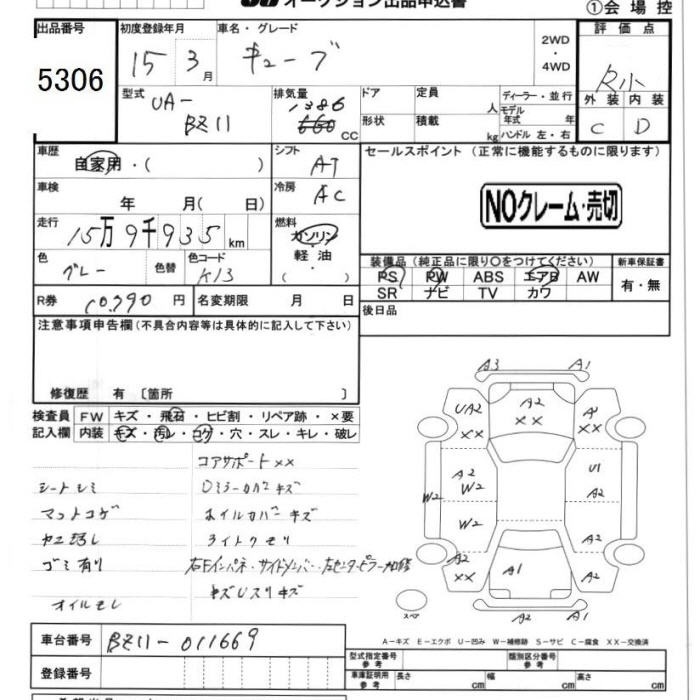 オークション出品申込書
①会場控
出品番号
5306
初度登録年月
15 3月
車名・グレード
キューブ
2WD
・
4WD
評価点
外装 内装
C D
型式
UA-
BZ11
排気量
1386
660 cc
ドア
形状
定員 人
積載 kg
ディーラー・並行
モデル
年式 年
ハンドル 左・右
車歴
自家用・( )
シフト
AT
セールスポイント (正常に機能するものに限ります)
車検
年 月( 日)
冷房
AC
NOクレーム・売切
走行
15万9千935km
燃料
ガソリン
軽油
( )
色
グレー
色替
色コード
K13
装備品(純正品に限り○をつけてください)
PS PW ABS エアB AW
SR ナビ TV カワ
新車保証書
有・無
R券
10,790円
名変期限 月 日
後日品
注意事項申告欄(不具合内容等は具体的に記入して下さい)
修復歴 有〔箇所 〕
検査員
記入欄
FW キズ・飛石・ヒビ割・リペア跡・×要
内装 キズ・汚レ・コゲ・穴・スレ・キレ・破レ
コアサポートxx
シートシミ
Dミラーカバーキズ
マットコゲ
ホイルカバーキズ
ライトクモリ
ゴミ有り
右Fインパネ・サイドメンバー・左センターピラー加修
オイルモレ
A3 A1
UA2 A2 A1
XX XX XX
A2 U1
W2 W2 A2
W2 A2
A2 A1 A2
XX
スペア
A2 A1
A-キズ E-エクボ U-凹み W-補修跡 S-サビ C-腐食 XX-交換済
車台番号
BZ11-011669
登録番号
型式指定番号
参考
類別区分番号
参考
車庫証明用
参考
長さ cm 幅 cm 高さ cm